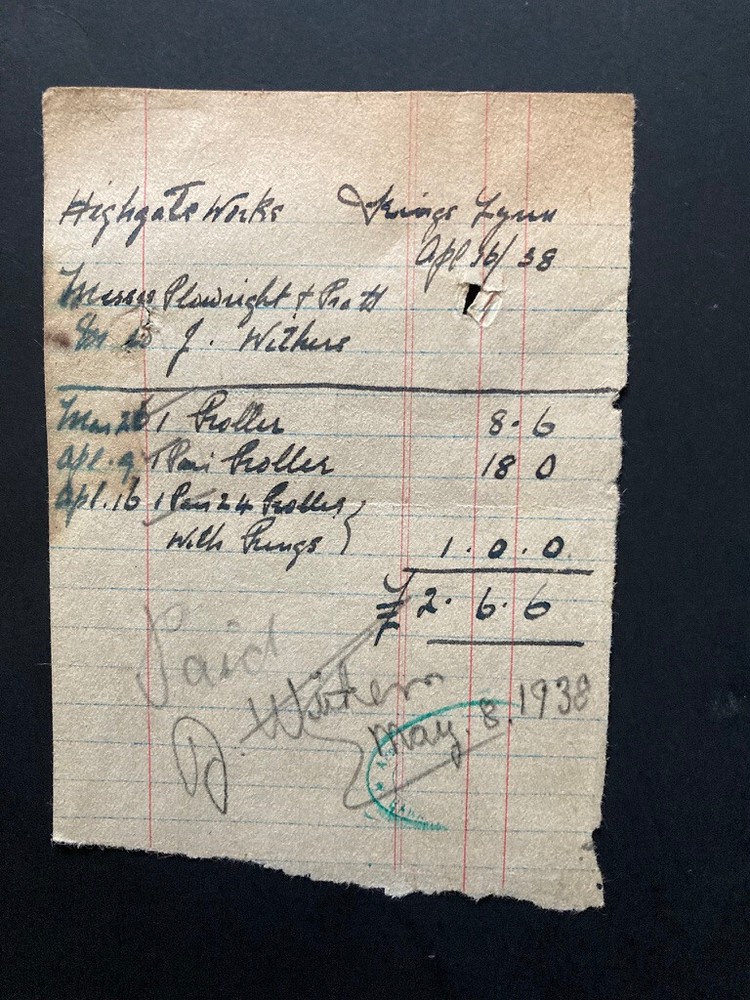 Highgate Works Kings Lynn
Apl 16/38
Messrs Plowright & Pratt
J. Withers
Mar 26 1 Roller 8.6
Apl. 9 1 Pair Roller 18 0
Apl. 16 1 Pair 24 Rollers
With Rungs 1.0.0
£ 2.6.6
Paid
J. Withers
May. 8. 1938